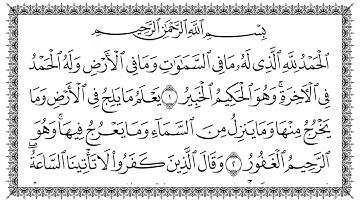 بِسْمِ ٱللَّهِ ٱلرَّحْمَٰنِ ٱلرَّحِيمِ
ٱلْحَمْدُ لِلَّهِ ٱلَّذِى لَهُۥ مَا فِى ٱلسَّمَٰوَٰتِ وَمَا فِى ٱلْأَرْضِ وَلَهُ ٱلْحَمْدُ
فِى ٱلْءَاخِرَةِ ۚ وَهُوَ ٱلْحَكِيمُ ٱلْخَبِيرُ ١ يَعْلَمُ مَا يَلِجُ فِى ٱلْأَرْضِ وَمَا
يَخْرُجُ مِنْهَا وَمَا يَنزِلُ مِنَ ٱلسَّمَآءِ وَمَا يَعْرُجُ فِيهَا ۚ وَهُوَ
ٱلرَّحِيمُ ٱلْغَفُورُ ٢ وَقَالَ ٱلَّذِينَ كَفَرُوا۟ لَا تَأْتِينَا ٱلسَّاعَةُ ۖ